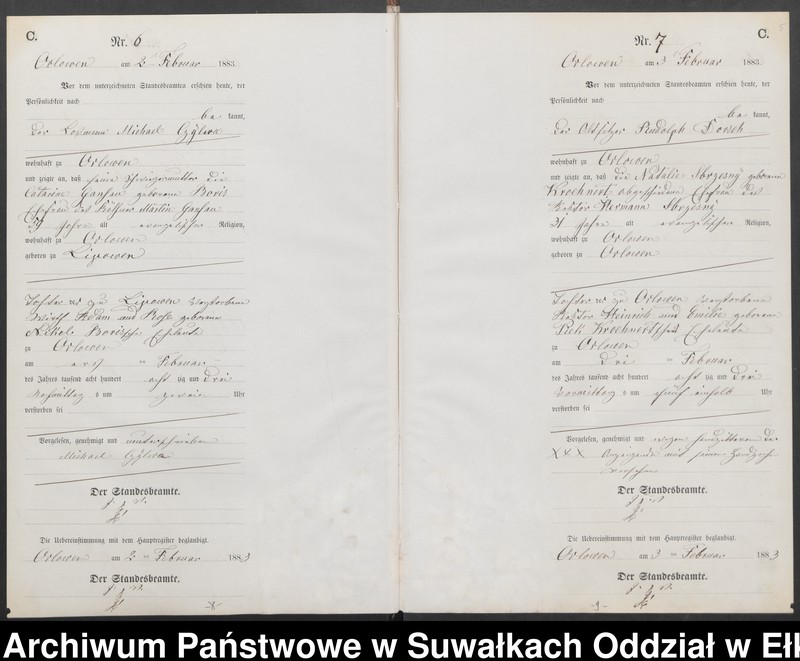 C.
Nr. 6
Orlowen am 2 Februar 1883.
Vor dem unterzeichneten Standesbeamten erschien heute, der
Persönlichkeit nach
be kannt,
der Losmann Michael Czyliwa
wohnhaft zu Orlowen
und zeigte an, daß seine Schwiegermutter die
Catarine Gansau geborene Boris
Ehefrau des Martin Gansau
59 Jahre alt evangelischer Religion,
wohnhaft zu Orlowen
geboren zu Lipowen
Tochter der zu Lipowen verstorbene
Wirth Adam und Rose geborene
Nikel Borisschen Eheleute
zu Orlowen
am erst en Februar
des Jahres tausend acht hundert acht zig und drei
Nachmittag s um zwei Uhr
verstorben sei
Vorgelesen, genehmigt und unterschrieben
Michael Czyliwa
Der Standesbeamte.
Die Uebereinstimmung mit dem Hauptregister beglaubigt.
Orlowen am 2 ten Februar 1883
Der Standesbeamte.
C.
5
Nr. 7
Orlowen am 3 Februar 1883.
Vor dem unterzeichneten Standesbeamten erschien heute, der
Persönlichkeit nach
be kannt,
der Altsitzer Rudolph Dorsch
wohnhaft zu Orlowen
und zeigte an, daß die Natalie Skrzesny geborene
Krochnert abgeschiedene Ehefrau des
Rektor Hermann Skrzesny
31 Jahre alt evangelischer Religion,
wohnhaft zu Orlowen
geboren zu Orlowen
Tochter der zu Orlowen verstorbene
Rektor Heinrich und Emilie geborene
Pick Krochnertschen Eheleute
zu Orlowen
am drei ten Februar
des Jahres tausend acht hundert acht zig und drei
Vormittag s um fünf einhalb Uhr
verstorben sei
Vorgelesen, genehmigt und wegen Handzittern der
XXX Anzeigende mit seinem Handzeichen
versehen
Der Standesbeamte.
Die Uebereinstimmung mit dem Hauptregister beglaubigt.
Orlowen am 3 ten Februar 1883
Der Standesbeamte.
Archiwum Państwowe w Suwałkach Oddział w Ełk